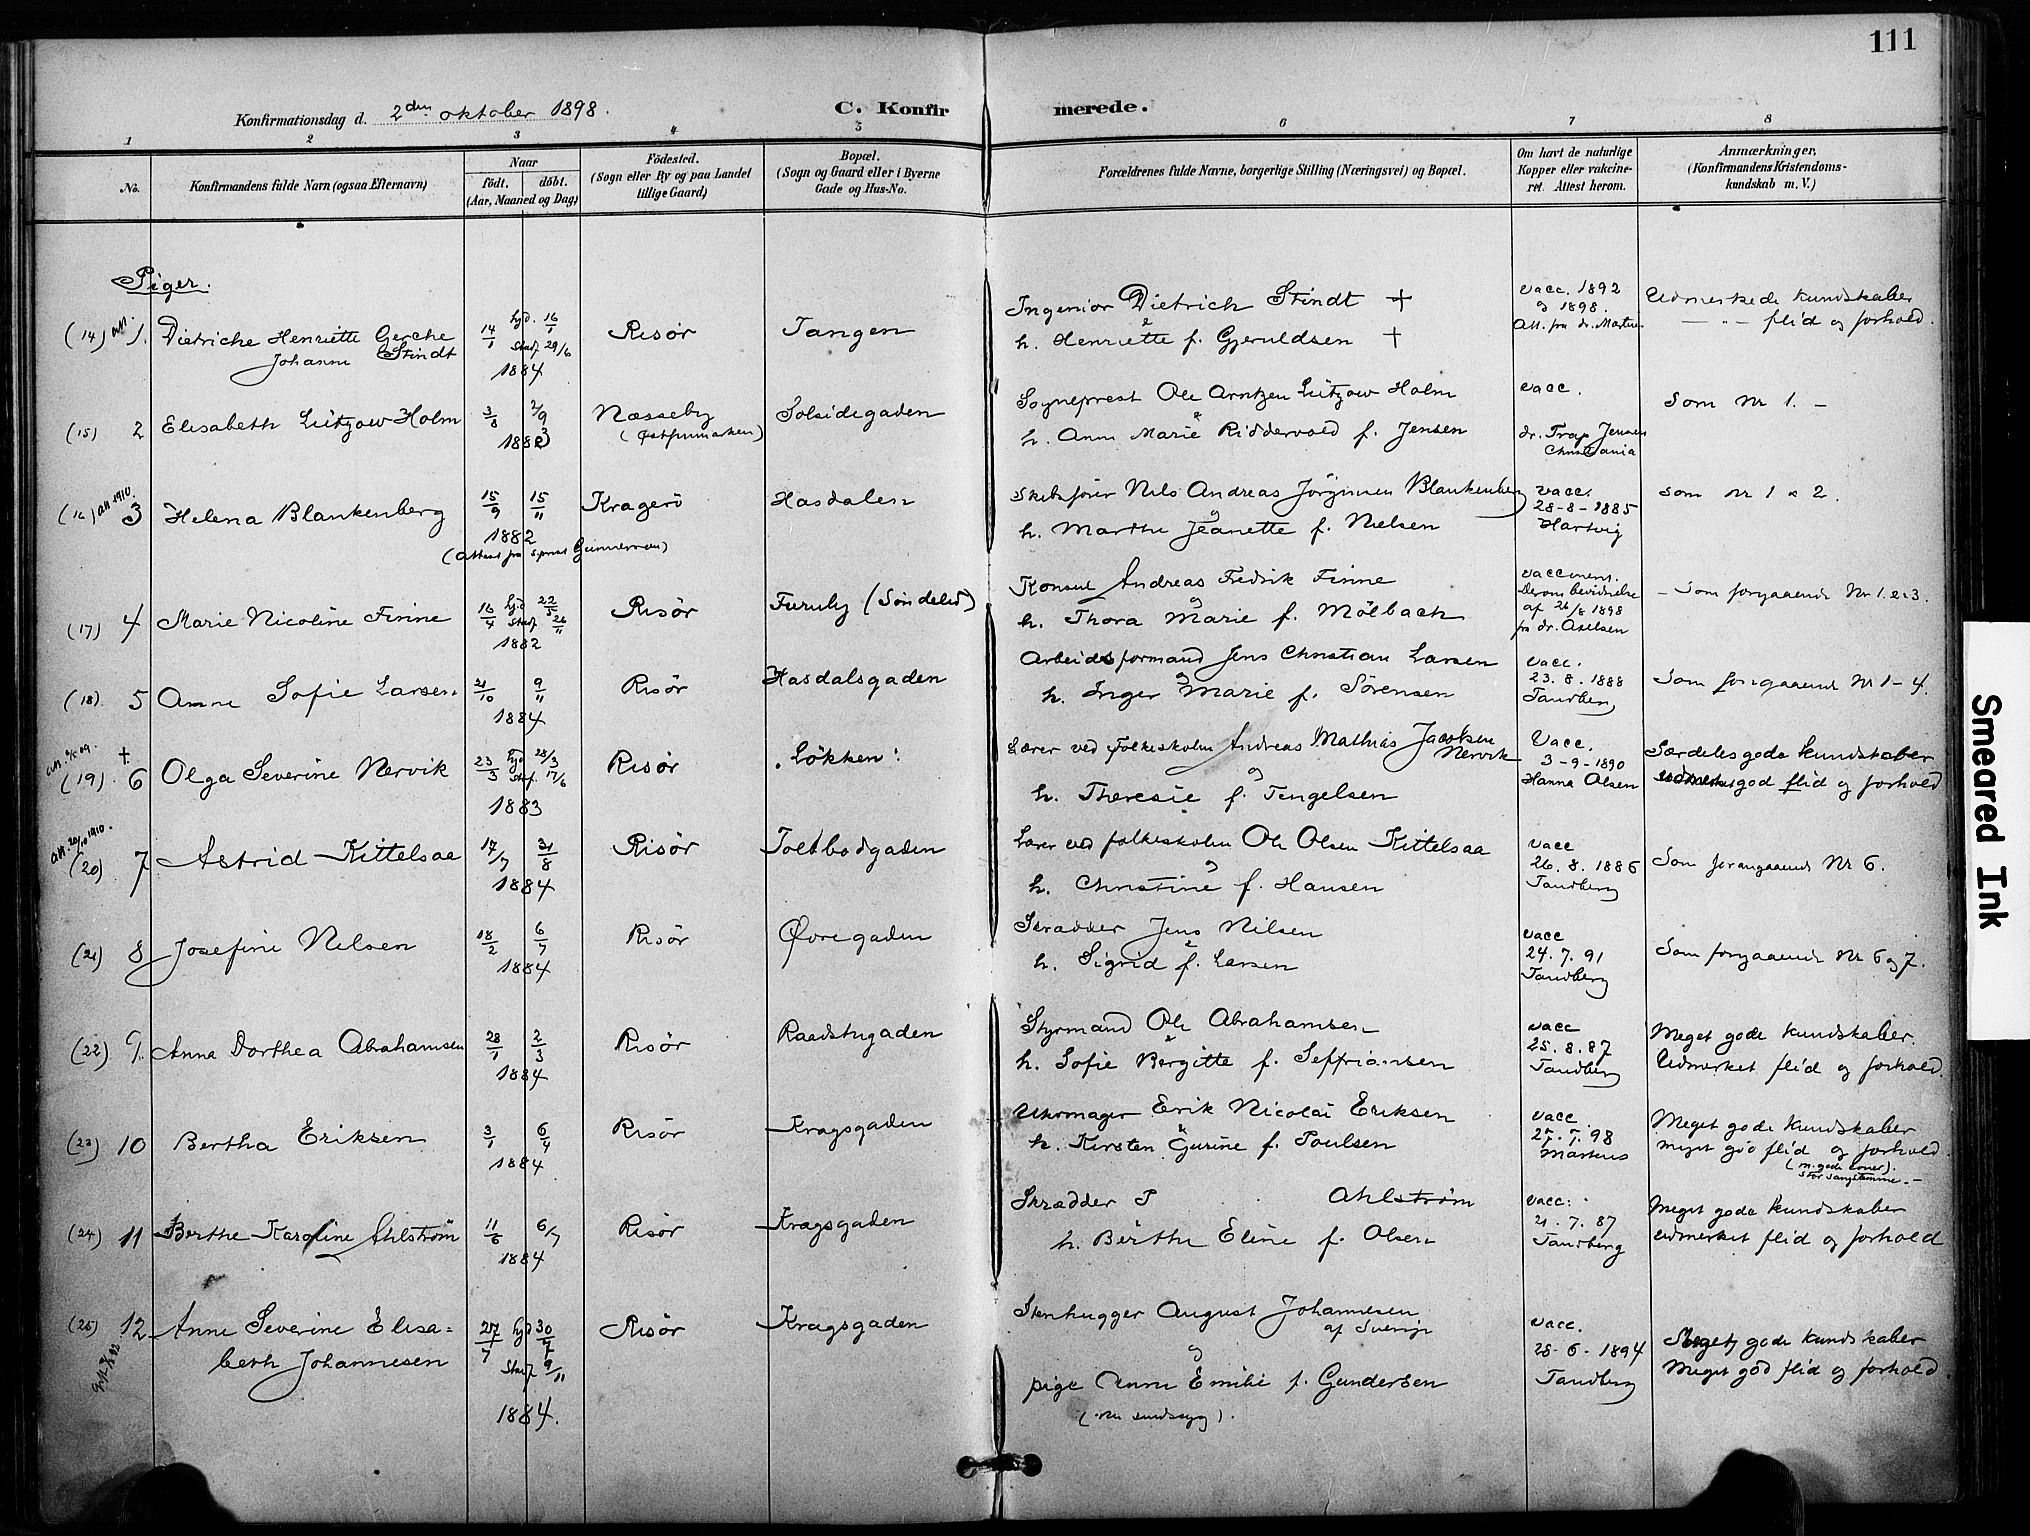 111
Konfirmationsdag d. 2den oktober 1898.
C. Konfirmerede.
1 2 3 4 5 6 7 8
No.
Konfirmandens fulde Navn (ogsaa Efternavn)
Naar
født. døbt.
(Aar, Maaned og Dag)
Födested.
(Sogn eller By og paa Landet
tillige Gaard)
Bopæl.
(Sogn og Gaard eller i Byerne
Gade og Hus-No.
Forældrenes fulde Navne, borgerlige Stilling (Næringsvei) og Bopæl.
Om havt de naturlige
Kopper eller vakcine-
ret. Attest herom.
Anmærkninger,
(Konfirmandens Kristendoms-
kundskab m. V.)
Piger.
(14) att. 1. Dietriche Henriette Gerche
Johanne Stindt
14/1 hjd. 16/1
Stadf. 29/6
1884
Risør
Tangen
Ingeniør Dietrich Stindt †
&
h. Henriette f. Gjeruldsen †
vacc. 1892
og 1898.
Att. fra dr. Martens
Udmerkede kundskaber
— " — flid og forhold.
(15) 2 Elisabeth Lützow-Holm
3/8 2/9
1883
Næsseby
(Østfinmarken)
Solsidegaden
Sogneprest Ole Arntzen Lützow Holm
&
h. Anna Marie Riddervold f. Jensen
vacc.
dr. Trap Jensen
Christiania
Som Nr 1. -
(16) att 1910. 3 Helena Blankenberg
15/9 15/11
1882
Kragerö
Hasdalen
Skibsfører Nils Andreas Jörginsen Blankenberg
og
h. Marthe Jeanette f. Nielsen
vacc.
28-8-1885
Hartvig
Som Nr 1 & 2.
(17) 4 Marie Nicoline Finne
16/4 hjd 22/5
Stadf. 26/11
1882
Risør
Furuly (Søndeled)
Konsul Andreas Fredrik Finne
og
h. Thora Marie f. Mölbach
vaccinert.
Derom bevidnelse
af 26/8 1898
fra dr. Axelsen
- Som forgaaende Nr 1. 2. 3.
(18) 5 Anne Sofie Larsen.
21/10 9/11
1884
Risør
Hasdalsgaden
Arbeidsformand Jens Christian Larsen
og
h. Inger Marie f. Sörensen
vacc.
23. 8. 1888
Tandberg
Som forrgaaende Nr 1-4.
(19) † 6 Olga Severine Nervik
23/3 hjd 28/3
Stadf. 17/6
1883
Risør
"Lökken"
Lærer ved folkeskolen Andreas Mathias Jacobsen
Nervik
og
h. Theresie f. Tengelsen
Vacc.
3-9-1890
Hanna Olsen
Særdeles gode kundskaber
god flid og forhold
att. 20/10 1910.
(20) 7 Astrid Kittelsaa
17/7 31/8
1884
Risør
Toldbodgaden
Lærer ved folkeskolen Ole Olsen Kittelsaa
og
h. Christine f. Hansen
vacc
26. 8. 1886
Tandberg
Som forangaaende Nr 6.
(21) 8 Josefine Nilsen
18/2 6/7
1884
Risør
Øvregaden
Skrædder Jens Nilsen
&
h. Sigrid f. Larsen
vacc
24. 7. 91
Tandberg
Som forrgaaende Nr 6 og 7.
(22) 9. Anna Dorthea Abrahamsen
28/1 2/3
1884
Risør
Raadstugaden
Styrmand Ole Abrahamsen
&
h. Sofie Bergitte f. Seffriansen
vacc
25. 8. 87
Tandberg
Meget gode kundskaber.
Udmerket flid og forhold.
(23) 10 Bertha Eriksen
3/1 6/4
1884
Risør
Kragsgaden
Uhrmager Erik Nicolai Eriksen
&
h. Kirsten Gurine f. Poulsen
vacc
Martens
Meget gode kundskaber
meget god flid og forhold.
(m. gode evner).
Stor sangstemme. -
(24) 11 Berthe Karoline Ahlström
11/6 6/7
1884
Risør
Kragsgaden
Skrædder P Ahlstrøm
h. Berthe Eline f. Olsen
vacc:
21. 7. 87
Tandberg
Meget gode kundskaber
udmerket flid og forhold
(25) 12 Anne Severine Elisa=
beth Johannesen
27/7 hjd 30/7
Stadf 9/11
1884.
Risør
Kragsgaden
Stenhugger August Johannesen
af Sverige
og
pige Anne Emilie f. Gundersen
vacc.
28-6-1894
Tandberg
Meget gode kundskaber
Meget god flid og forhold
Smeared Ink